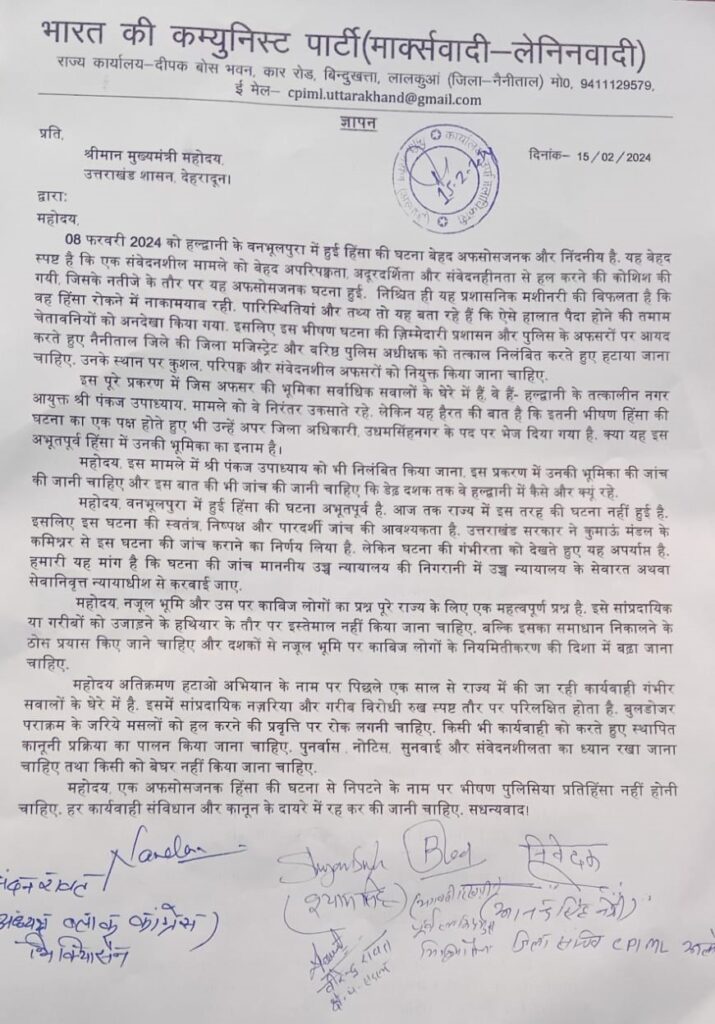 भारत की कम्युनिस्ट पार्टी(मार्क्सवादी–लेनिनवादी)
राज्य कार्यालय–दीपक बोस भवन, कार रोड, बिन्दुखत्ता, लालकुआं (जिला–नैनीताल) मो0, 9411129579,
ई मेल– cpiml.uttarakhand@gmail.com
ज्ञापन
प्रति,
श्रीमान मुख्यमंत्री महोदय,
उत्तराखंड शासन, देहरादून।
15-2-24
दिनांक– 15/02/2024
द्वाराः
महोदय,
08 फरवरी 2024 को हल्द्वानी के वनभूलपुरा में हुई हिंसा की घटना बेहद अफसोसजनक और निंदनीय है. यह बेहद
स्पष्ट है कि एक संवेदनशील मामले को बेहद अपरिपक्वता, अदूरदर्शिता और संवेदनहीनता से हल करने की कोशिश की
गयी, जिसके नतीजे के तौर पर यह अफसोसजनक घटना हुई. निश्चित ही यह प्रशासनिक मशीनरी की विफलता है कि
वह हिंसा रोकने में नाकामयाब रही. पारिस्थितियां और तथ्य तो यह बता रहे हैं कि ऐसे हालात पैदा होने की तमाम
चेतावनियों को अनदेखा किया गया. इसलिए इस भीषण घटना की ज़िम्मेदारी प्रशासन और पुलिस के अफसरों पर आयद
करते हुए नैनीताल जिले की जिला मजिस्ट्रेट और वरिष्ठ पुलिस अधीक्षक को तत्काल निलंबित करते हुए हटाया जाना
चाहिए. उनके स्थान पर कुशल, परिपक्व और संवेदनशील अफसरों को नियुक्त किया जाना चाहिए.
इस पूरे प्रकरण में जिस अफसर की भूमिका सर्वाधिक सवालों के घेरे में हैं, वे हैं- हल्द्वानी के तत्कालीन नगर
आयुक्त श्री पंकज उपाध्याय. मामले को वे निरंतर उकसाते रहे. लेकिन यह हैरत की बात है कि इतनी भीषण हिंसा की
घटना का एक पक्ष होते हुए भी उन्हें अपर जिला अधिकारी, उधमसिंहनगर के पद पर भेज दिया गया है. क्या यह इस
अभूतपूर्व हिंसा में उनकी भूमिका का इनाम है।
महोदय, इस मामले में श्री पंकज उपाध्याय को भी निलंबित किया जाना, इस प्रकरण में उनकी भूमिका की जांच
की जानी चाहिए और इस बात की भी जांच की जानी चाहिए कि डेढ़ दशक तक वे हल्द्वानी में कैसे और क्यूं रहे.
महोदय, वनभूलपुरा में हुई हिंसा की घटना अभूतपूर्व है. आज तक राज्य में इस तरह की घटना नहीं हुई है.
इसलिए इस घटना की स्वतंत्र, निष्पक्ष और पारदर्शी जांच की आवश्यकता है. उत्तराखंड सरकार ने कुमाऊं मंडल के
कमिश्नर से इस घटना की जांच कराने का निर्णय लिया है. लेकिन घटना की गंभीरता को देखते हुए यह अपर्याप्त है.
हमारी यह मांग है कि घटना की जांच माननीय उच्च न्यायालय की निगरानी में उच्च न्यायालय के सेवारत अथवा
सेवानिवृत्त न्यायाधीश से करवाई जाए.
महोदय, नजूल भूमि और उस पर काबिज लोगों का प्रश्न पूरे राज्य के लिए एक महत्वपूर्ण प्रश्न है. इसे सांप्रदायिक
या गरीबों को उजाड़ने के हथियार के तौर पर इस्तेमाल नहीं किया जाना चाहिए. बल्कि इसका समाधान निकालने के
ठोस प्रयास किए जाने चाहिए और दशकों से नजूल भूमि पर काबिज लोगों के नियमितीकरण की दिशा में बढ़ा जाना
चाहिए.
महोदय अतिक्रमण हटाओ अभियान के नाम पर पिछले एक साल से राज्य में की जा रही कार्यवाही गंभीर
सवालों के घेरे में है. इसमें सांप्रदायिक नज़रिया और गरीब विरोधी रुख स्पष्ट तौर पर परिलक्षित होता है. बुलडोजर
पराक्रम के जरिये मसलों को हल करने की प्रवृत्ति पर रोक लगनी चाहिए. किसी भी कार्यवाही को करते हुए स्थापित
कानूनी प्रक्रिया का पालन किया जाना चाहिए. पुनर्वास , नोटिस, सुनवाई और संवेदनशीलता का ध्यान रखा जाना
चाहिए तथा किसी को बेघर नहीं किया जाना चाहिए.
महोदय, एक अफसोसजनक हिंसा की घटना से निपटने के नाम पर भीषण पुलिसिया प्रतिहिंसा नहीं होनी
चाहिए. हर कार्यवाही संविधान और कानून के दायरे में रह कर की जानी चाहिए. सधन्यवाद।
निवेदक
रावत
(श्याम सिंह)
(आनन्द सिंह नेगी)
अध्यक्ष ब्लाक कांग्रेस)
भिकियासैंण
वीरेन्द्र रावत
जिला सचिव CPIML